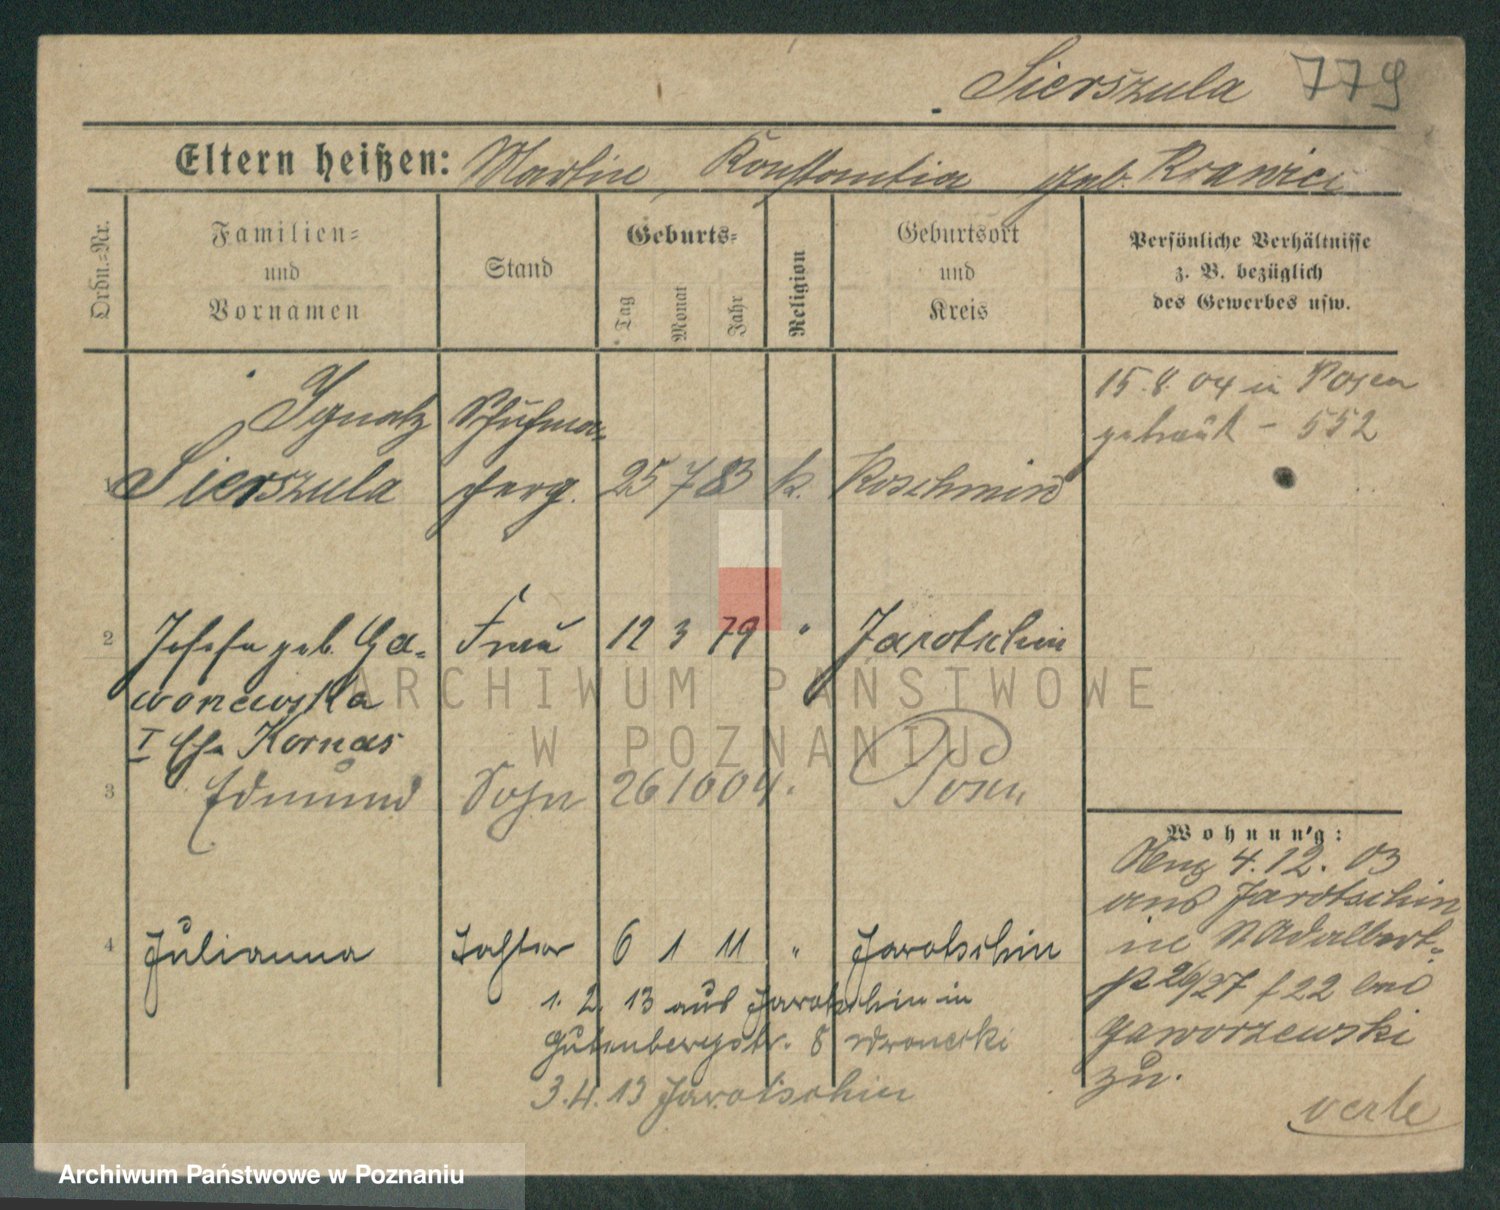 Sierszula 779
Eltern heißen: Martin, Konstantia geb. Krawiec
Ordn.-Nr.
Familien-
und
Vornamen
Stand
Geburts-
Tag
Monat
Jahr
Religion
Geburtsort
und
Kreis
Persönliche Verhältnisse
z. B. bezüglich
des Gewerbes usw.
15.8.04 in Posen
getraut - 552
Ignatz Schuhma-
1 Sierszula 25 7 83 k. Koschmin
2 Josefa geb. Ga- Frau 12 3 79 " Jarotschin
worzewska
I Ehe Kornas
3 Edmund Sohn 26 10 04 " Posen
4 Julianna Tochter 6 1 11 " Jarotschin
1. 2. 13 aus Jarotschin in
Gutenbergstr. 8 Wronecki
3.4.13 Jarotschin
Wohnung:
4.12.03
aus Jarotschin
in St Adalbert-
26/27 f 22 bei
Gaworzewski
zu.
verte
ARCHIWUM PAŃSTWOWE
W POZNANIU
Archiwum Państwowe w Poznaniu